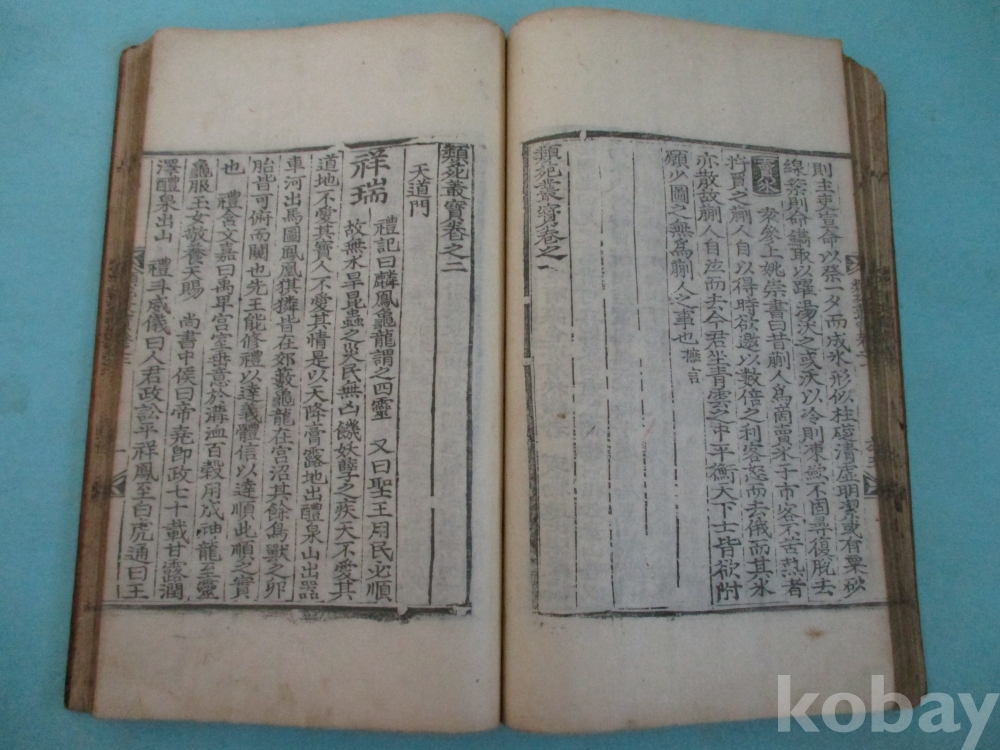 則主吏宣命以琹一夕而成氷形似柱瑩清虛明潔或有粟砂
線祭則命鐫取以躍湯沃之或沃以冷則凍絲不固尋復脫去
賣氷 蔡參上姚崇書曰昔蒯人爲商賣氷于市客有苦熱者
將買之蒯人自以得時欲邀以數倍之利客怒而去俄而其氷
亦散故蒯人自泣而去今君坐青雲之中平衡天下士皆欲附
願少圖之無爲蒯人之事也 摭言
類苑叢寶卷之一
類苑叢寶卷之二
天道門
祥瑞 禮記曰麟鳳龜龍謂之四靈 又曰聖王用民必順
故無水旱昆蟲之災民無凶饑妖孽之疾天不愛其
道地不愛其寶人不愛其情是以天降膏露地出醴泉山出器
車河出馬圖鳳凰猉獜皆在郊藪龜龍在宮沼其餘鳥獸之卵
胎皆可俯而闚也先王能修禮以達義體信以達順此順之實
也 禮含文嘉曰禹卑宮室垂意於溝洫百穀用成神龍至靈
龜服玉女敬養天賜 尚書中侯曰帝堯卽政七十載甘露潤
澤醴泉出山 禮斗威儀曰人君政訟平祥鳳至白虎通曰王
kobay